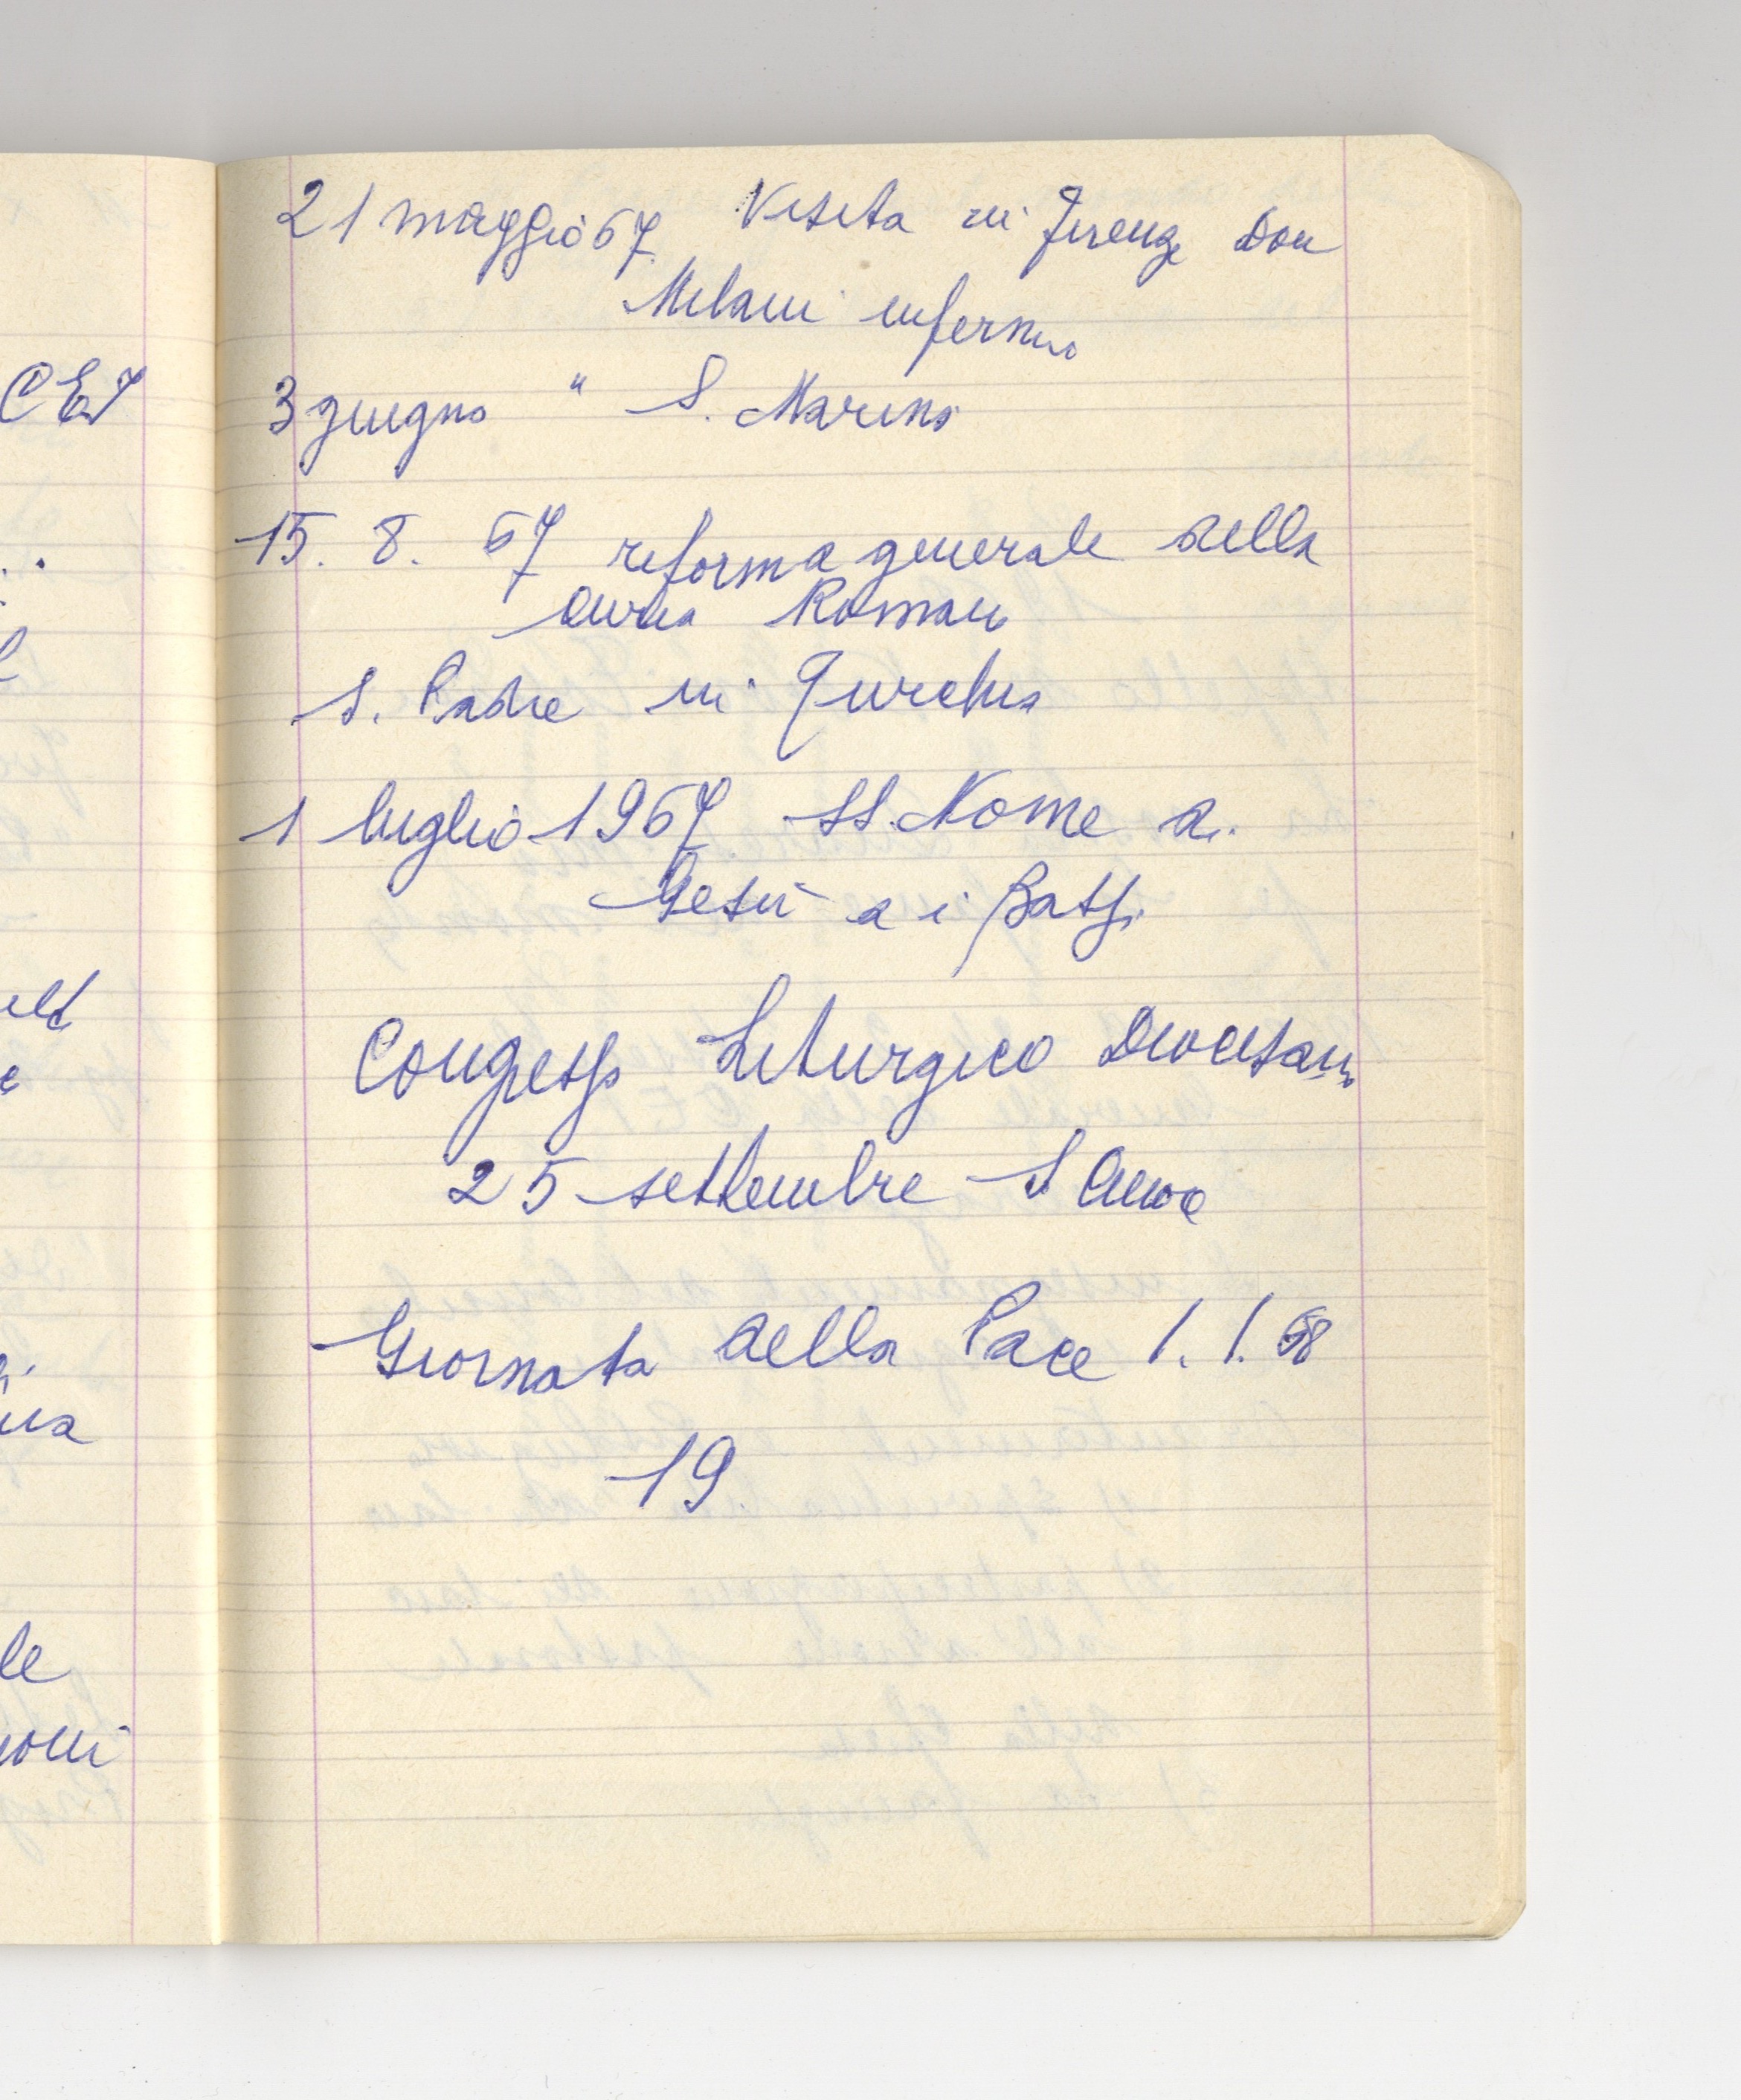 CEI
21 maggio 67 Visita in Firenze Don
Milani infermo
3 giugno " S. Marino
15. 8. 67 riforma generale della
Curia Romana
S. Padre in Turchia
1 luglio 1967 SS. Nome d.
Gesù a i Bassi
Congresso Liturgico Diocesano
25 settembre S Anna
Giornata della Pace 1. 1. 68
19